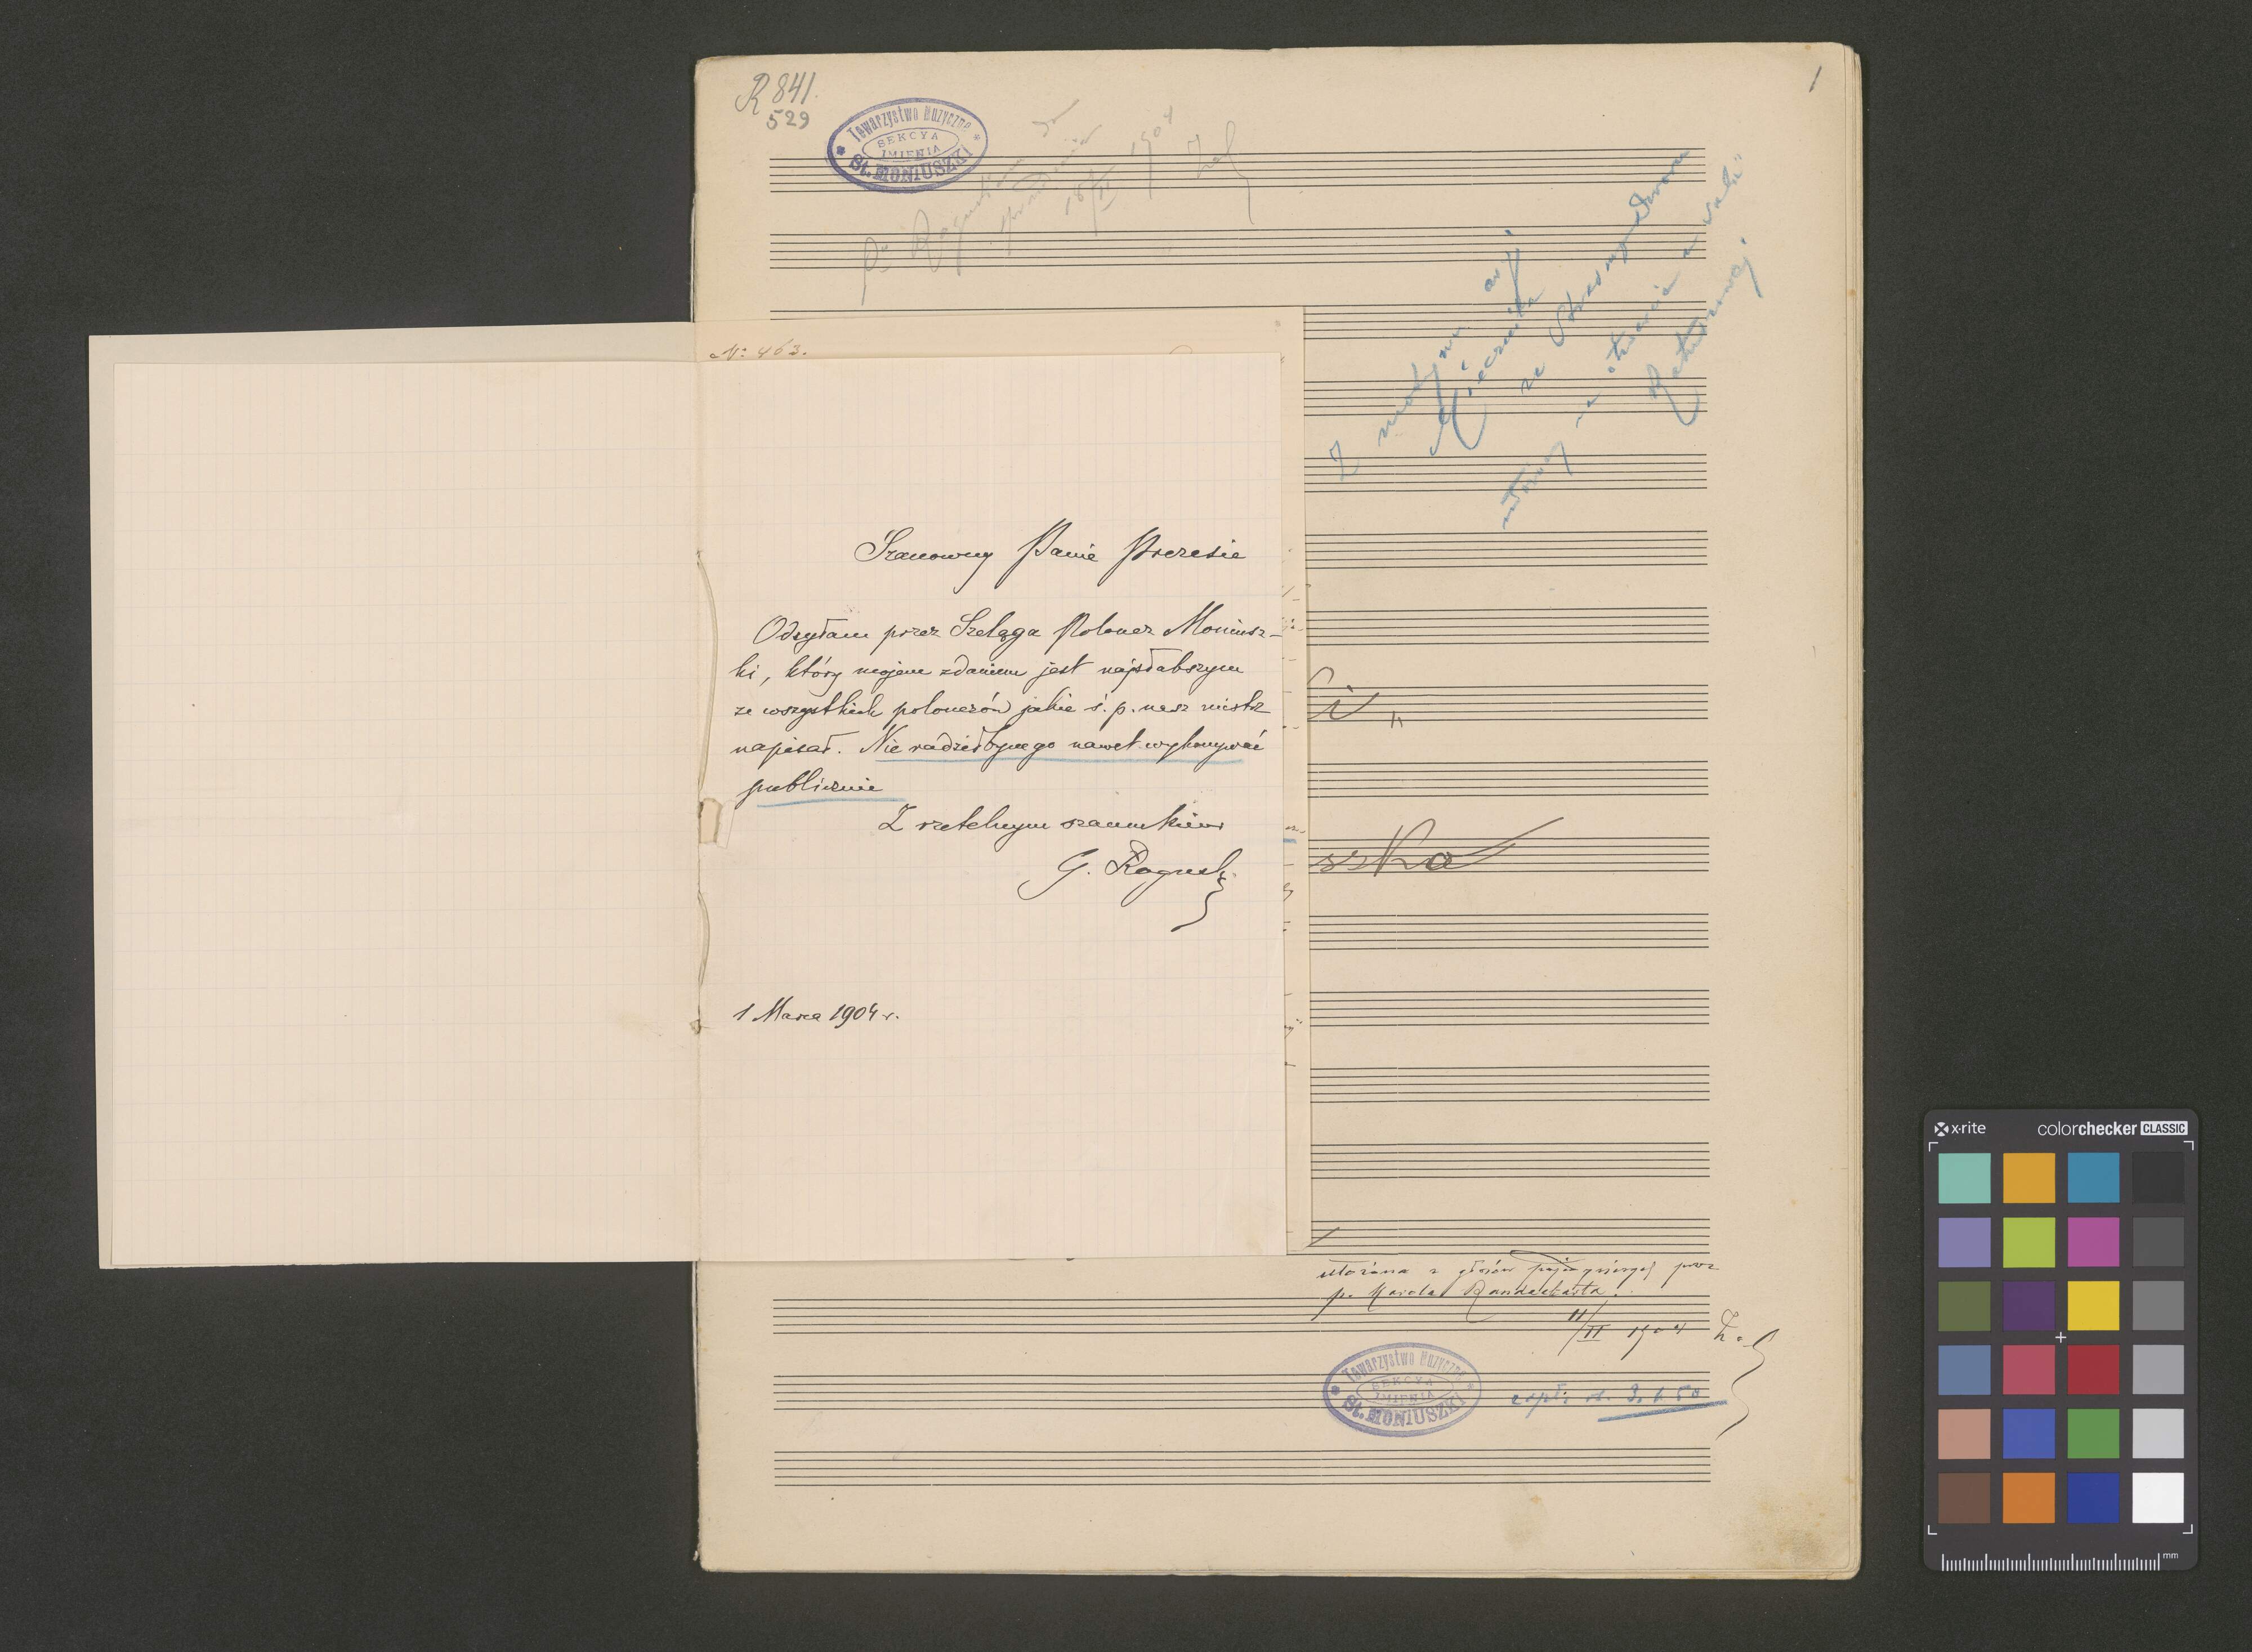 R 841.
529
1
Towarzystwo Muzyczne
SEKCYA
IMIENIA
St. MONIUSZKI
18/II 1904
Z motywu arji
Miecznika
ze Straszny Dwora
№ 463.
Szanowny Panie Prezesie
Odsyłam przez Szeląga Polonez Moniusz-
ki, który mojem zdaniem jest najsłabszym
ze wszystkich polonezów jakie ś. p. nasz mistrz
napisał. Nie radziłbym go nawet wykonywać
publicznie
Z rzetelnym szacunkiem
G. Roguski
1 Marca 1904 r.
szka
ułożona z głosów pojedynczych przez
p. Karola
11/II 1904
Towarzystwo Muzyczne
SEKCYA
IMIENIA
St. MONIUSZKI
x-rite colorchecker CLASSIC
mm